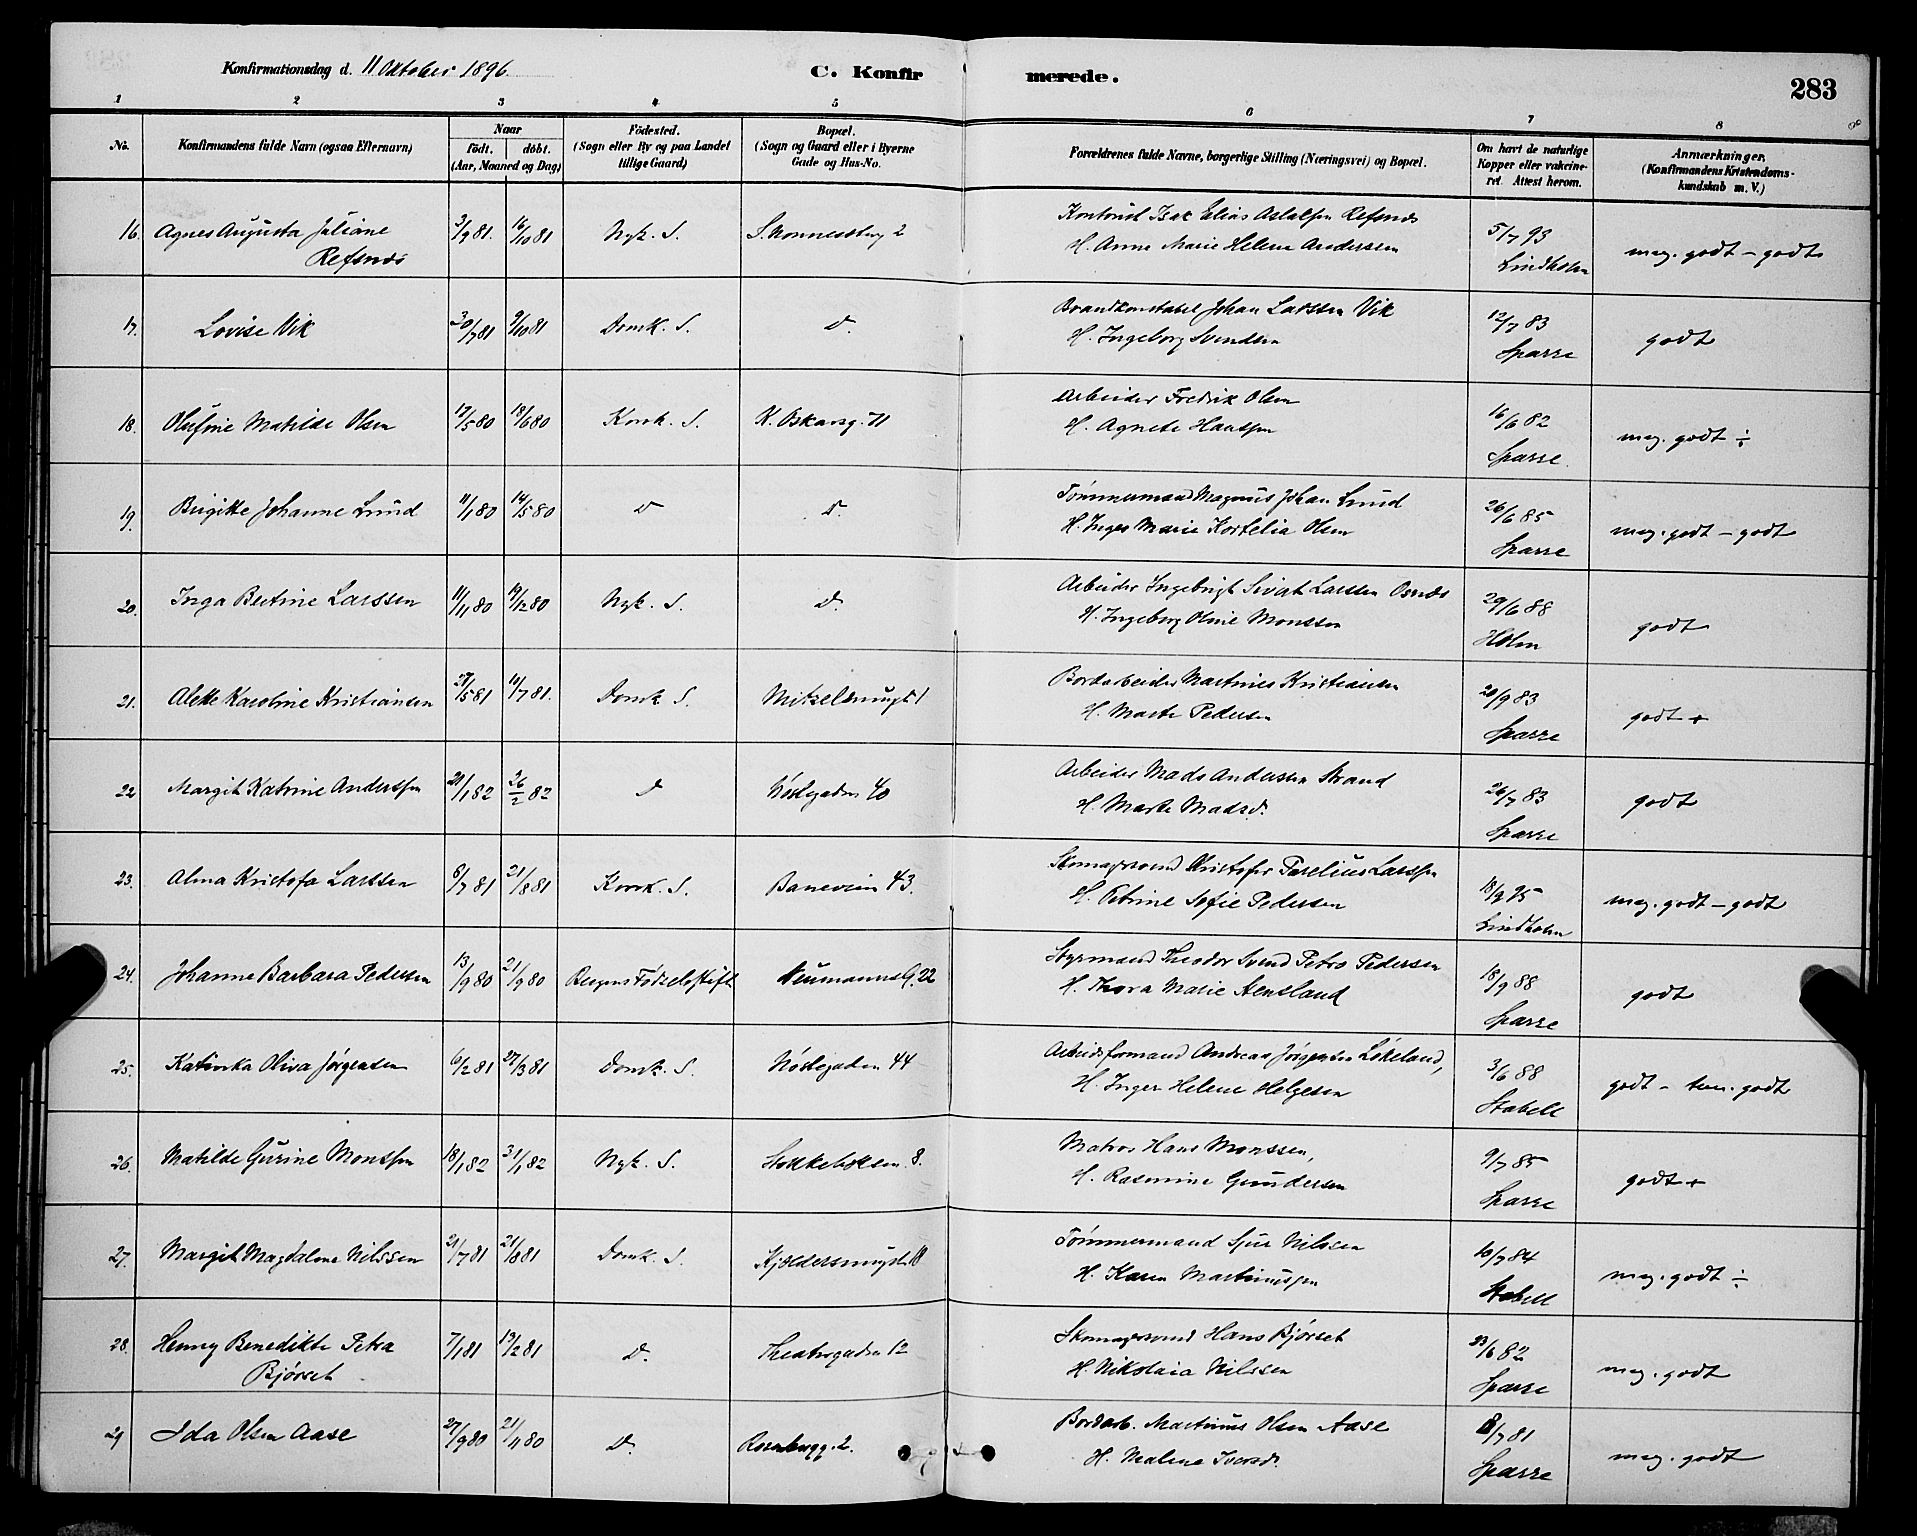 Konfirmationsdag d. 11 Oktober 1896.
C. Konfirmerede.
283
1 2 3 4 5 6 7 8
No.
Konfirmandens fulde Navn (ogsaa Efternavn)
Naar
födt. döbt.
(Aar, Maaned og Dag)
Födested.
(Sogn eller By og paa Landet
tillige Gaard)
Bopæl.
(Sogn og Gaard eller i Byerne
Gade og Hus-No.
Forældrenes fulde Navne, borgerlige Stilling (Næringsvei) og Bopæl.
Om havt de naturlige
Kopper eller vakcine-
ret. Attest herom.
Anmærkninger.
(Konfirmandens Kristendoms-
kundskab m. V.)
16. Agnes Augusta Juliane 3/9 81. 16/10 81 Nyk. S. 2 Isak Elias Aslaksen Refsnes 5/7 93 meg. godt - godt
Refsnes H. Anne Marie Helene Anderssen Lindholm
17. Lovise Vik 30/7 81 9/10 81 Domk. S. D. Brandkonstabel Johan Larssen Vik 12/7 83 godt
H. Ingeborg Svendsen Sparre
18. Olufine Matilde Olsen 17/5 80 18/6 80 Korsk. S. K. Oskarsg. 71 Arbeider Fredrik Olsen 16/6 82 meg. godt ÷
H. Agnete Hanssen Sparre
19. Birgitte Johanne Lund 11/1 80 14/5 80 D D Tømmermand Magnus Johan Lund 26/6 85 meg. godt - godt
H. Inger Marie Kornelia Olsen Sparre
20. Inga Bertine Larssen 11/11 80 19/12 80 Nyk. S. D. Arbeider Ingebrigt Sivert Larssen Osnes 29/6 88 godt
H. Ingeborg Oline Monssen Holm
21. Alette Karoline Kristiansen 27/5 81 10/7 81. Domk. S. 1 Bordarbeider Martines Kristiansen 20/9 83 godt +
H. Marte Pedersen Sparre
22 Margit Katrine Anderssen 21/1 82 26/2 82 D Nöstegaden 40 Arbeider Mads Andersen Strand 26/7 83 godt
H. Marte Madsd. Sparre
23. Alma Kristofa Larssen 6/7 81 21/8 81 Korsk. S. Baneveien 43. Skomagersvend Kristofer Larssen 18/9 95 meg. godt - godt
H. Petrine Sofie Pedersen Lindholm
24. Johanne Barbara Pedersen 13/9 80 21/9 80 Bergens Födselsstift Neumanns G. 22 Styrmand Theodor Svend Petro Pedersen 18/9 88 godt
H. Thora Marie Sparre
25. Katinka Oliva Jørgensen 6/2 81 27/3 81 Domk. S. Nöstegaden 44 Arbeidsformand Andreas Jørgensen Løkeland, 3/6 88 godt - tem. godt
H. Inger Helene Helgesen Stabell
26. Matilde Gurine Monssen 18/1 82 31/1 82 Nyk. S. 8. Matros Hans Monssen, 9/7 85 godt +
H. Rasmine Gundersen Sparre
27. Margit Magdalene Nilssen 21/7 81 21/8 81 Domk. S. Tømmermand Sjur Nilssen 10/7 84 meg. godt ÷
H. Karen Martinussen Stabell
28. Henny Benedikte Petra 7/1 81 13/2 81 D. Theatergaden 12 Skomagersvend Hans Bjørset 23/6 82 meg. godt
Bjørset H. Nikolaia Nilssen Sparre
29 Ida Olsen Aase 27/9 80 21/11 80 D. Rosenbergg. 2. Bordarb. Martinus Olsen Aase 8/7 81 meg. godt
H. Malene Iversd. Sparre